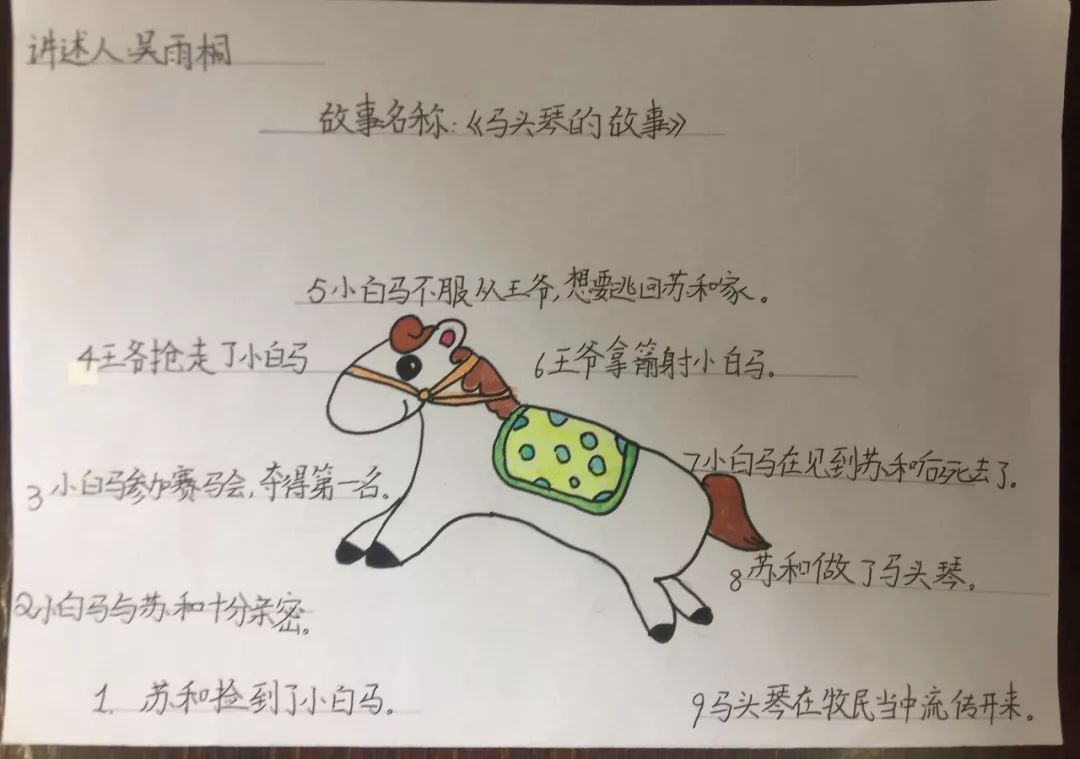 讲述人:吴雨桐
故事名称:《马头琴的故事》
5小白马不服从王爷,想要逃回苏和家。
4王爷抢走了小白马
6王爷拿箭射小白马。
3小白马参加赛马会,夺得第一名。
7小白马在见到苏和后死去了。
8苏和做了马头琴。
2小白马与苏和十分亲密。
1. 苏和捡到了小白马。
9马头琴在牧民当中流传开来。